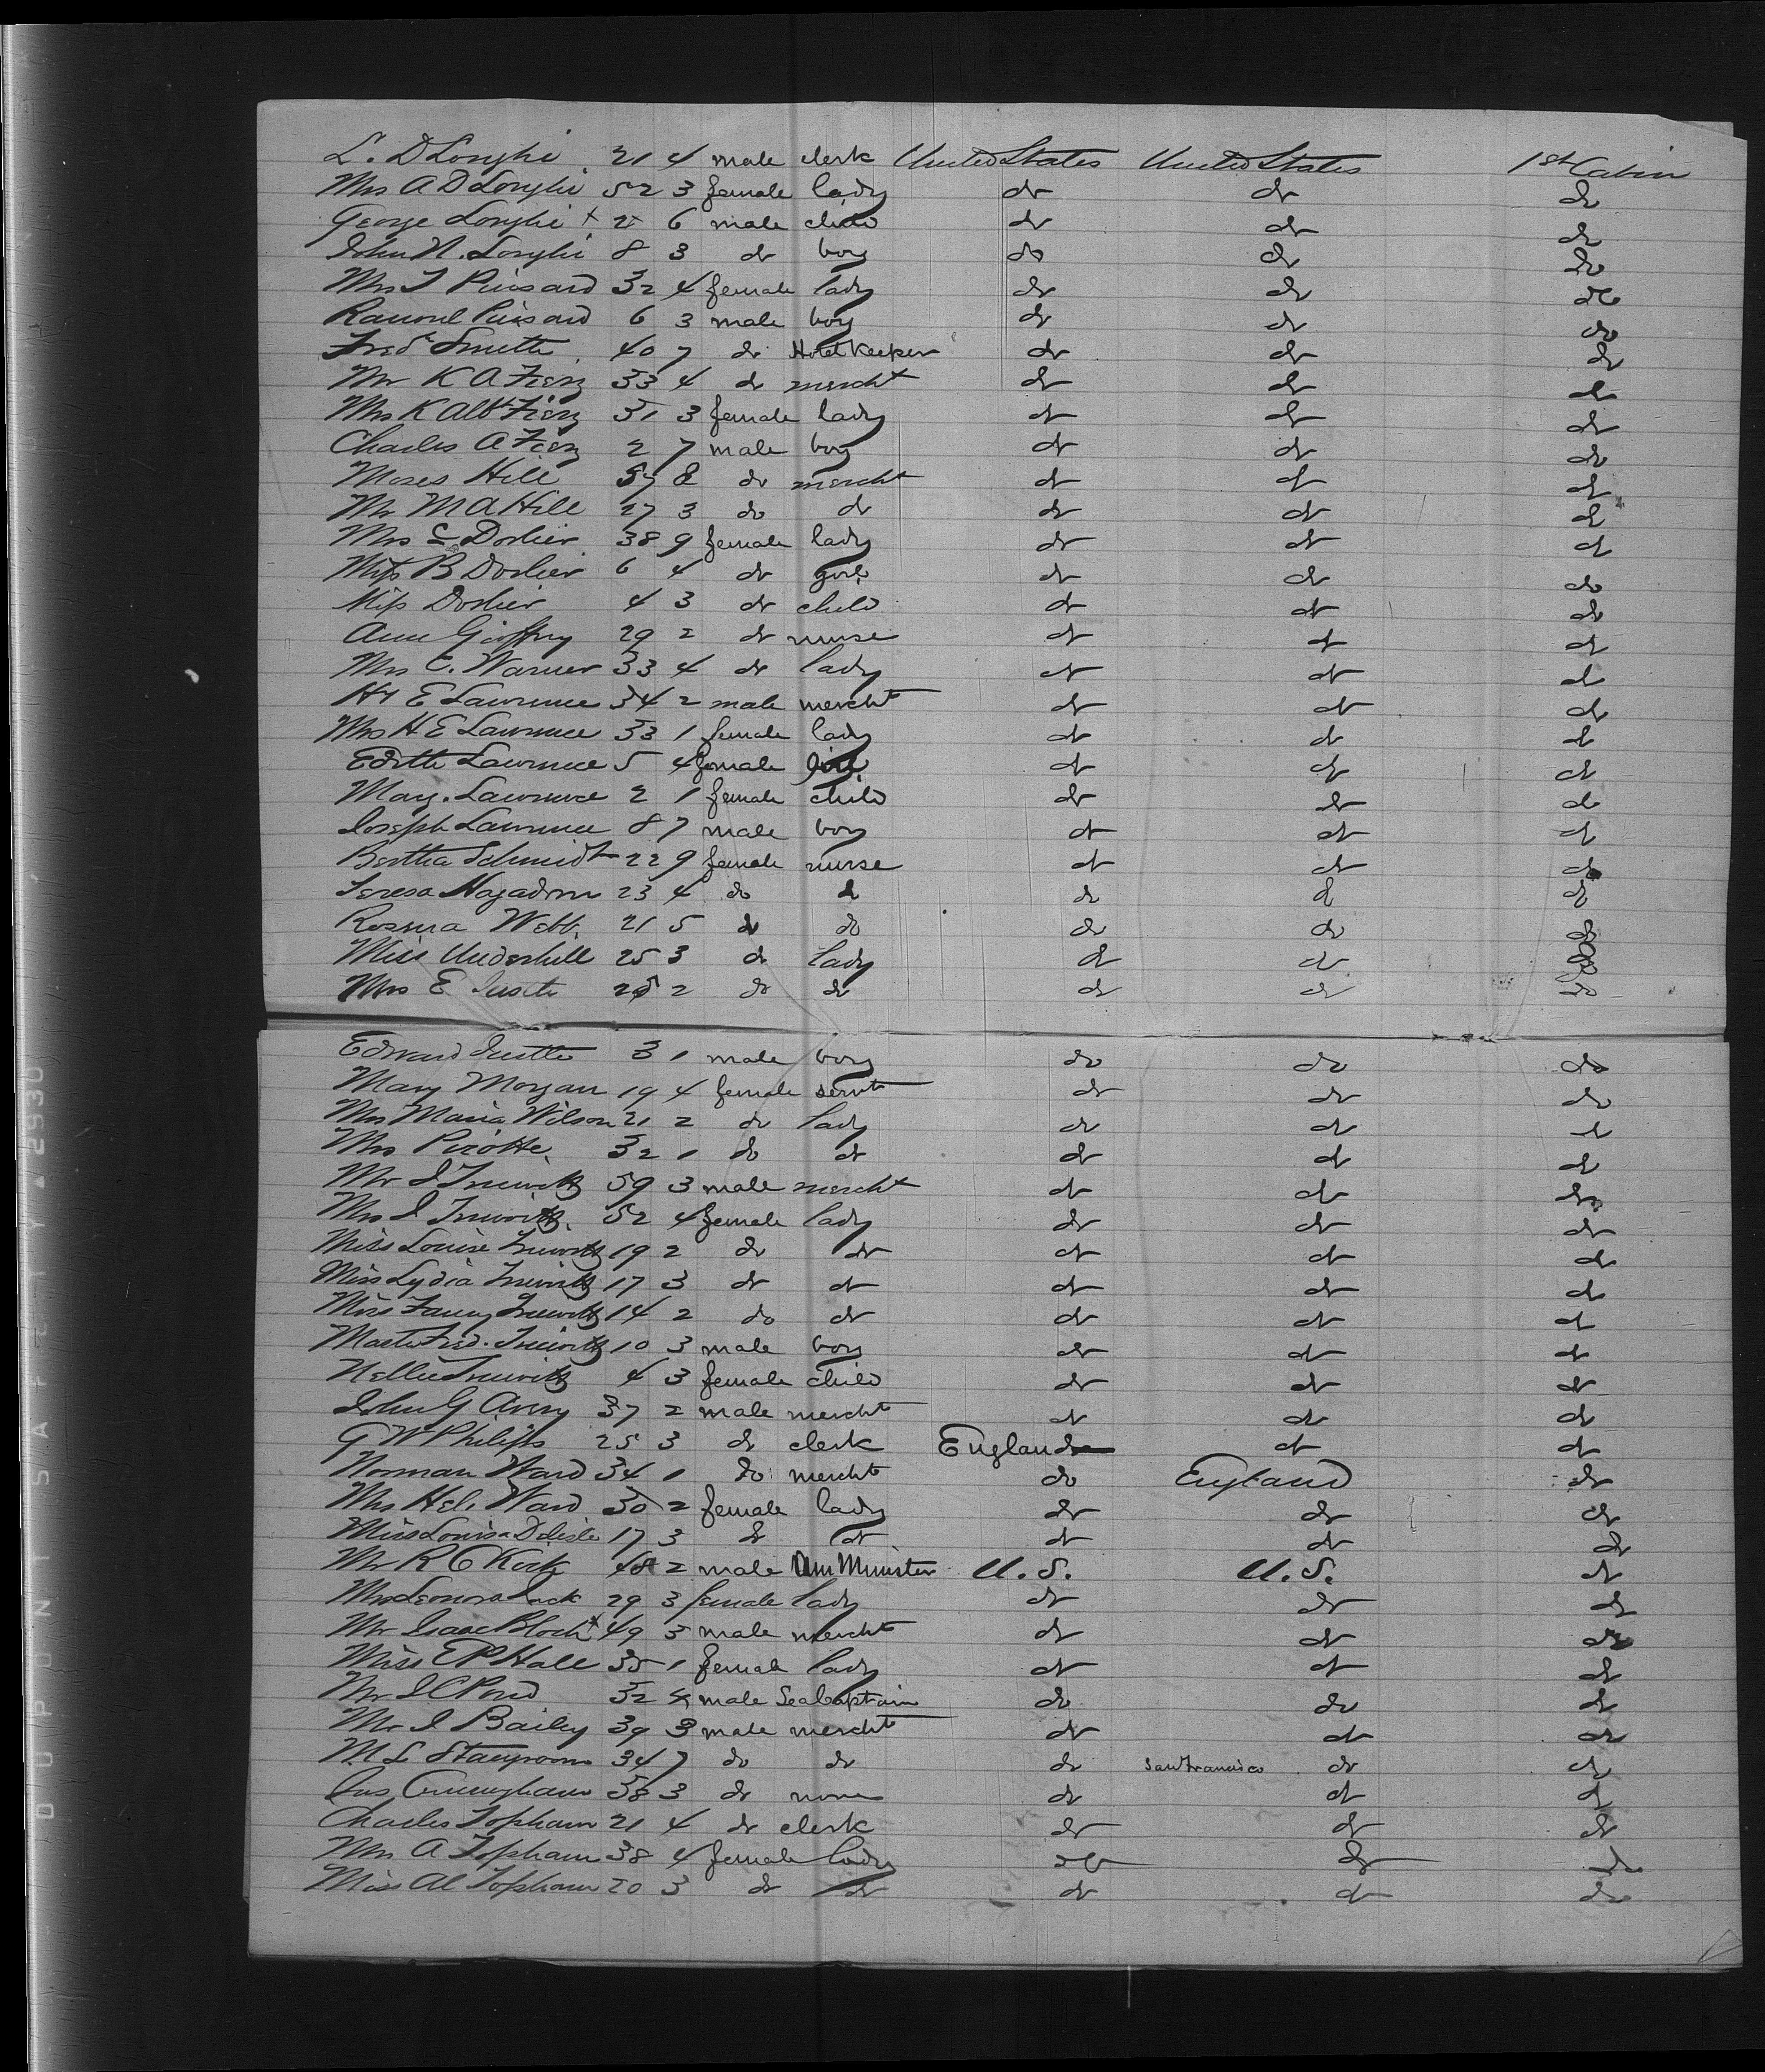 L. D Longhi 21 4 male clerk United States United States 1st Cabin
Mrs A D Longhi 52 3 female lady do do do
George Longhi + 2 6 male child do do do
John N. Longhi 8 3 do boy do do do
Mrs J Puissard 32 4 female lady do do do
Raoul Puissard 6 3 male boy do do do
Fred Smith 40 7 do Hotel Keeper do do do
Mr K A Fierz 33 4 do mercht do do do
Mrs K Fierz 31 3 female lady do do do
Charles A Fierz 2 7 male boy do do do
Moses Hill 57 8 do mercht do do do
Mr M A Hill 27 3 do do do do do
Mrs Dorlier 38 9 female lady do do do
Miss B Dorlier 6 4 do girl do do do
Miss Dorlier 4 3 do child do do do
Ann 29 2 do nurse do do do
Mrs C. Warner 33 4 do lady do do do
Hy E Lawrence 34 2 male mercht do do do
Mrs H E Lawrence 33 1 female lady do do do
Edith Lawrence 5 4 female girl do do do
Mary. Lawrence 2 1 female child do do do
Joseph Lawrence 8 7 male boy do do do
Bertha Schmidt 22 9 female nurse do do do
Teresa Hagadorn 23 4 do do do do do
Rosina Webb. 21 5 do do do do do
Miss Underhill 25 3 do lady do do do
Mrs E 25 2 do do do do do
Edward 3 1 male boy do do do
Mary Morgan 19 4 female servt do do do
Mrs Maria Wilson 21 2 do lady do do do
Mrs Pirotte. 32 1 do do do do do
Mr J 59 3 male mercht do do do
Mrs J 52 4 female lady do do do
Miss Louise 19 2 do do do do do
Miss Lydia 17 3 do do do do do
Miss Fanny 14 2 do do do do do
Master Fred. 10 3 male boy do do do
Nellie 4 3 female child do do do
John G Avery 37 2 male mercht do do do
G W Philips 25 3 do clerk England do do
Norman Ward 34 1 do mercht do England do
Mrs Hel. Ward 30 2 female lady do do do
Miss Louisa Delisle 17 3 do do do do do
Mr R C Kirk 48 2 male Am Minister U.S. U.S. do
Mrs Leonora 29 3 female lady do do do
Mr Isaac Bloch + 49 3 male mercht do do do
Miss E P Hall 35 1 female lady do do do
Mr J C Pond 32 4 male Sea Captain do do do
Mr J Bailey 39 3 male mercht do do do
M L 34 7 do do do San Francisco do do
Cunningham 38 3 do none do do do
Charles Topham 21 4 do clerk do do do
Mrs A Topham 38 4 female lady do do do
Miss Al Topham 20 3 do do do do do
DUPONT SAFETY 2930